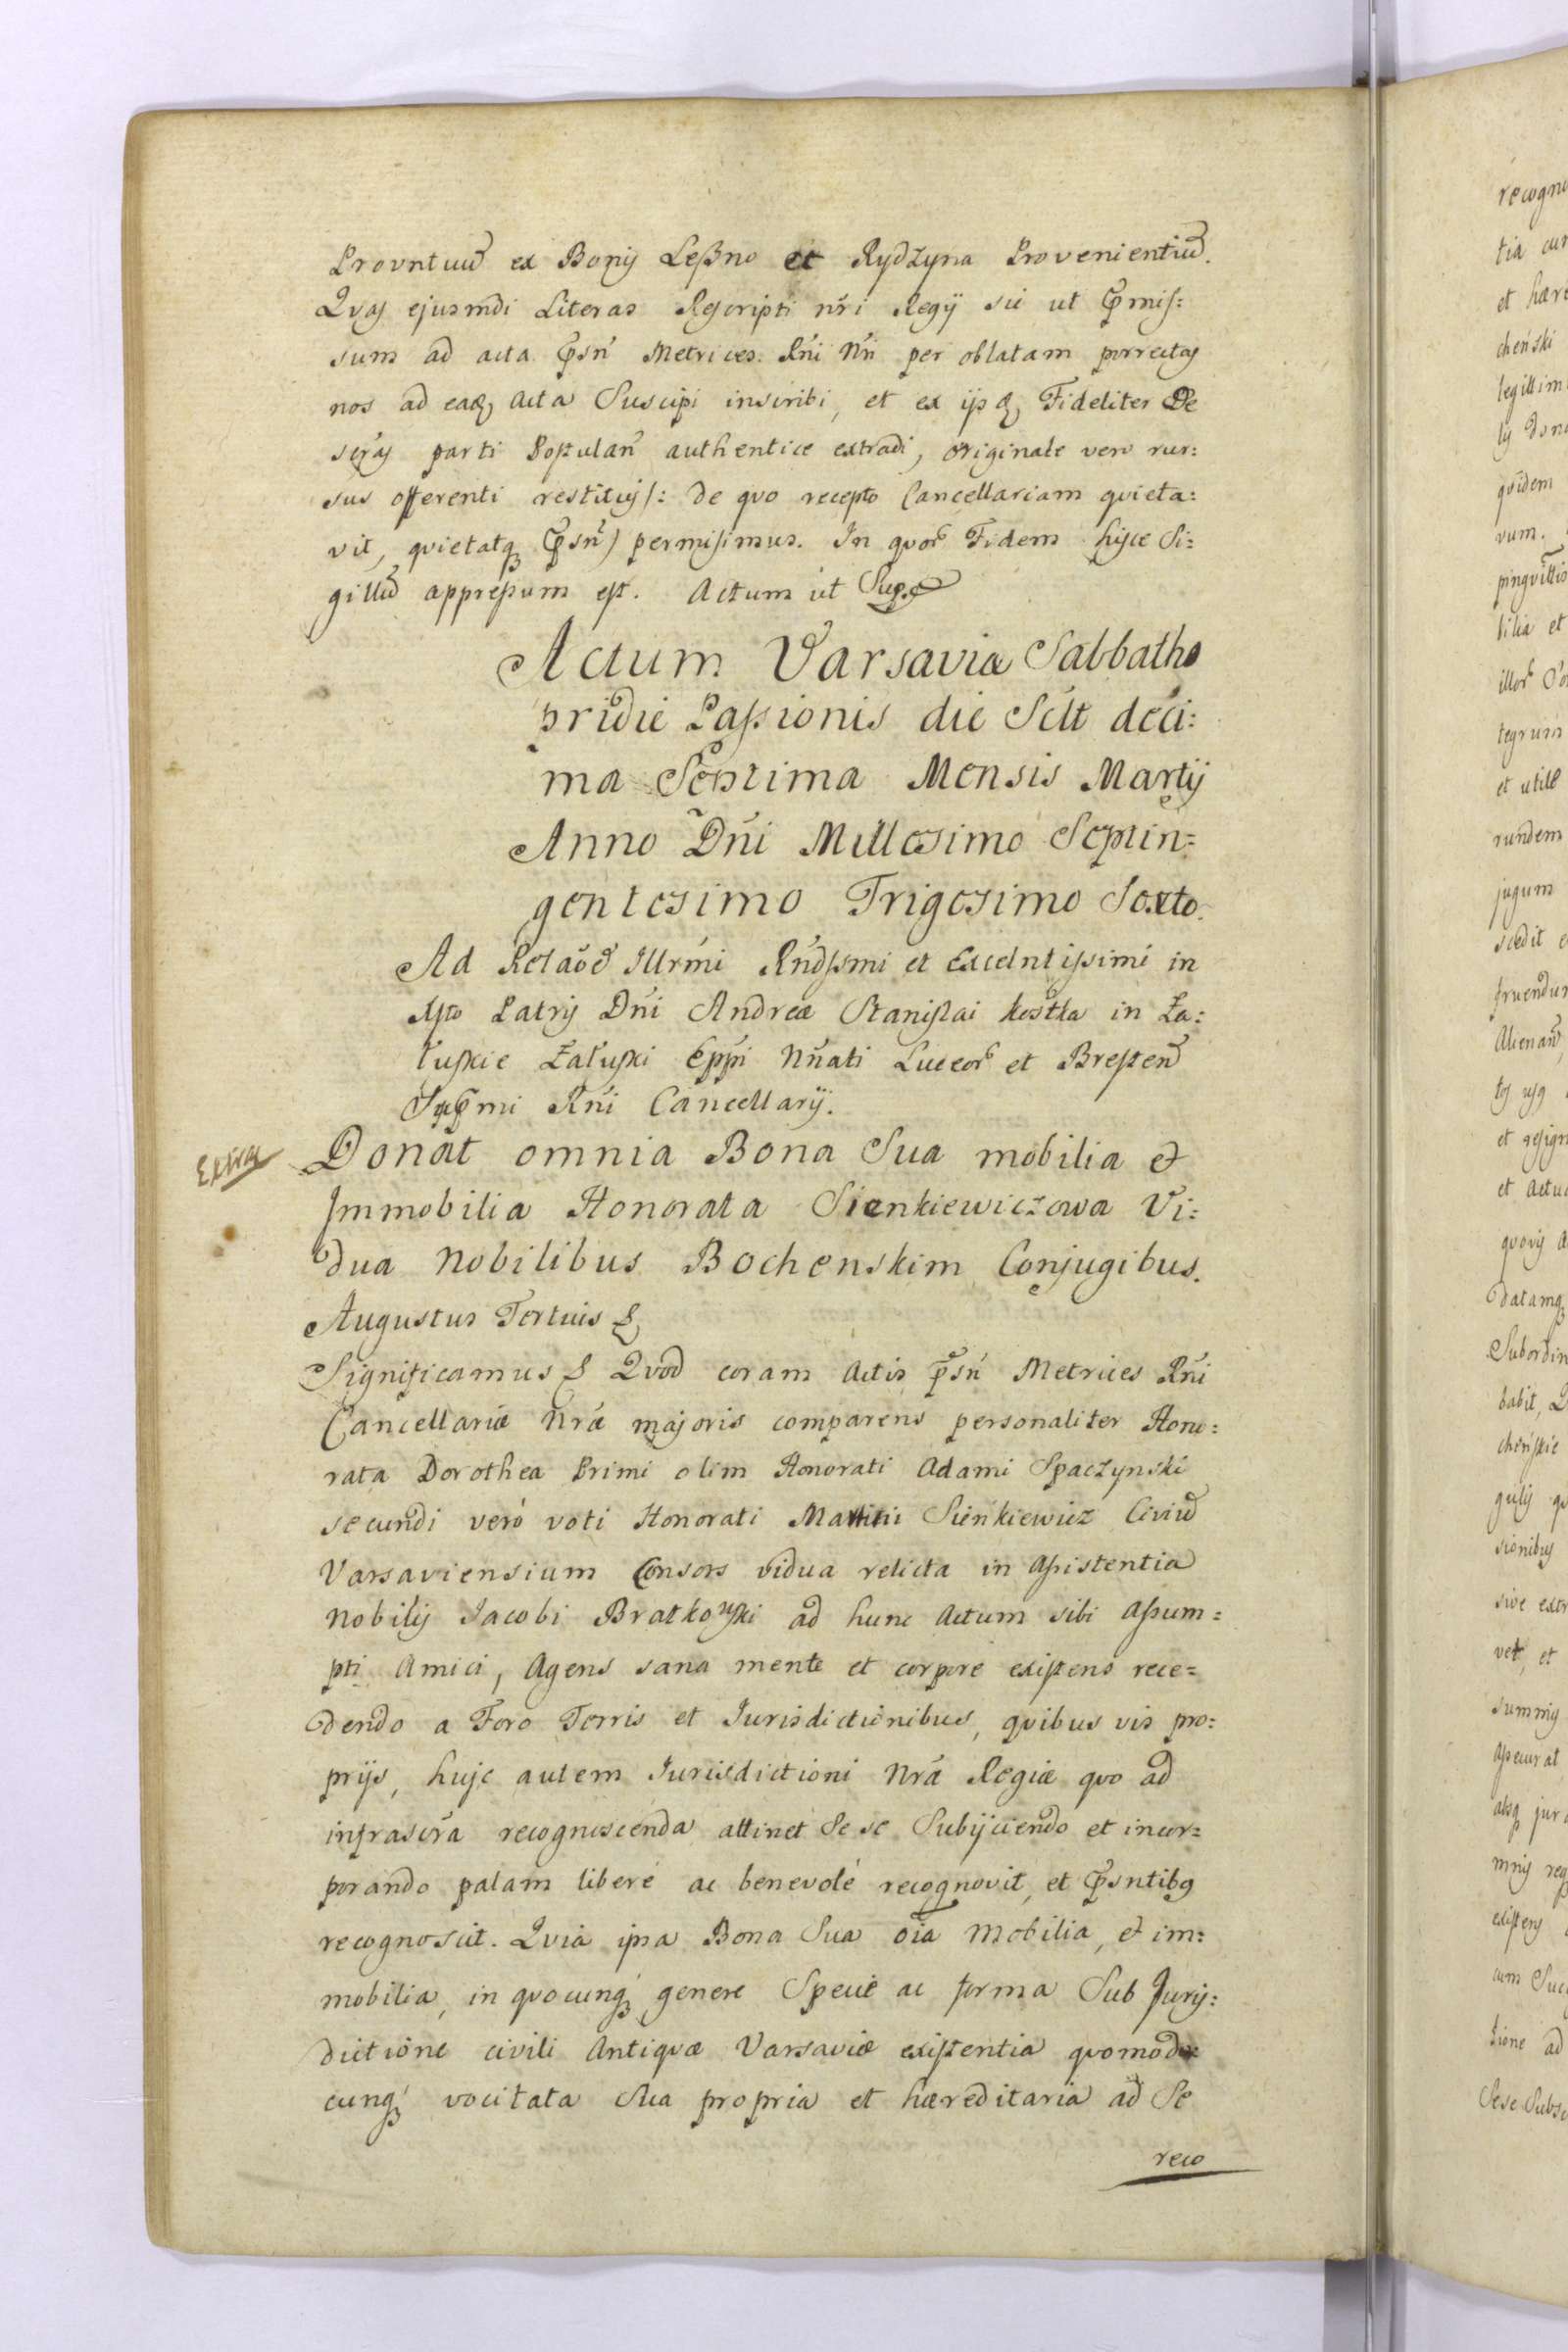 Provntuum̃ ex Bonis Leßno et Rydzyna Provenientiũ.
Qvas ejusmdi Literas Rescripti nr̃i Regij sic ut p̃mis:
sum ad acta p̃sñ Metrices Rñi Nr̃i per oblatam porrectas
nos ad eaq, acta Suscipi inscribi, et ex ijsq, Fideliter De
scr̃as parti Postulañ authentice extradi, originale vero rur:
sus offerenti restitujs: de qvo recepto Cancellariam qvieta:
vit, qvietatq p̃sñt) permisimus. In qvor̃ Fidem hisce Si:
gillũ appressum est. Actum ut Supr̃
Actum Varsaviæ Sabbatho
pridie Passionis die Sclt deci:
ma Septima Mensis Martij
Anno Dñi Millesimo Septin=
gentesimo Trigesimo Sexto.
Ad Relaõẽ Illrm̃i Rñdssmi et Excelntissimi in
Xsto Patris Dñi Andreæ Stanislai Kostka in Za:
łuskie Załuski Epp̃i Nñati Luceor̃ et Bresteñ
Sup̃mi Rñi Cancellarij.
Extra
Donat omnia Bona Sua mobilia et
Immobilia Honorata Sienkiewiczowa Vi:
dua Nobilibus Bochenskim Conjugibus.
Augustus Tertius &
Significamus & Qvod coram Actis p̃sñ Metrices Rñi
Cancellariæ Nr̃æ majoris comparens personaliter Hono:
rata Dorothea Primi olim Honorati Adami Spaczynski
secundi verò voti Honorati Sieńkiewicz Civiũ
Varsaviensium Consors vidua relicta in Assistentia
Nobilis Jacobi Bratkowski ad hunc Actum sibi Assum=
pti Amici, Agens sana mente et corpore existens rece=
dendo a Foro Terris et Jurisdictionibus, qvibus vis pro:
prijs, huic autem Jurisdictioni Nr̃æ Regiæ qvo ad
infrascr̃a recognoscenda attinet Se se Subijciendo et incor=
porando palam liberè ac benevolè recognovit, et p̃sntibq
recognoscit. Qvia ipsa Bona Sua oĩa Mobilia, et im:
mobilia, in qvocunq genere Specie ac forma Sub Juris:
dictione civili Antiqvæ Varsaviæ existentia qvomodo
cunq vocitata Sua propria et hæreditaria ad Se
reco
recogno
tia cu
et hære
cheński
legittim
qvidem
vum.
bilia et
tegrum
et utile
rundem
jugum
fruendu
Alienañ
et resign
et Actu
datamq
Subordin
babit,
cheńskie
sionibus
sive extr
vet, et
Assecurat
existens
tione ad
Sese Subsc